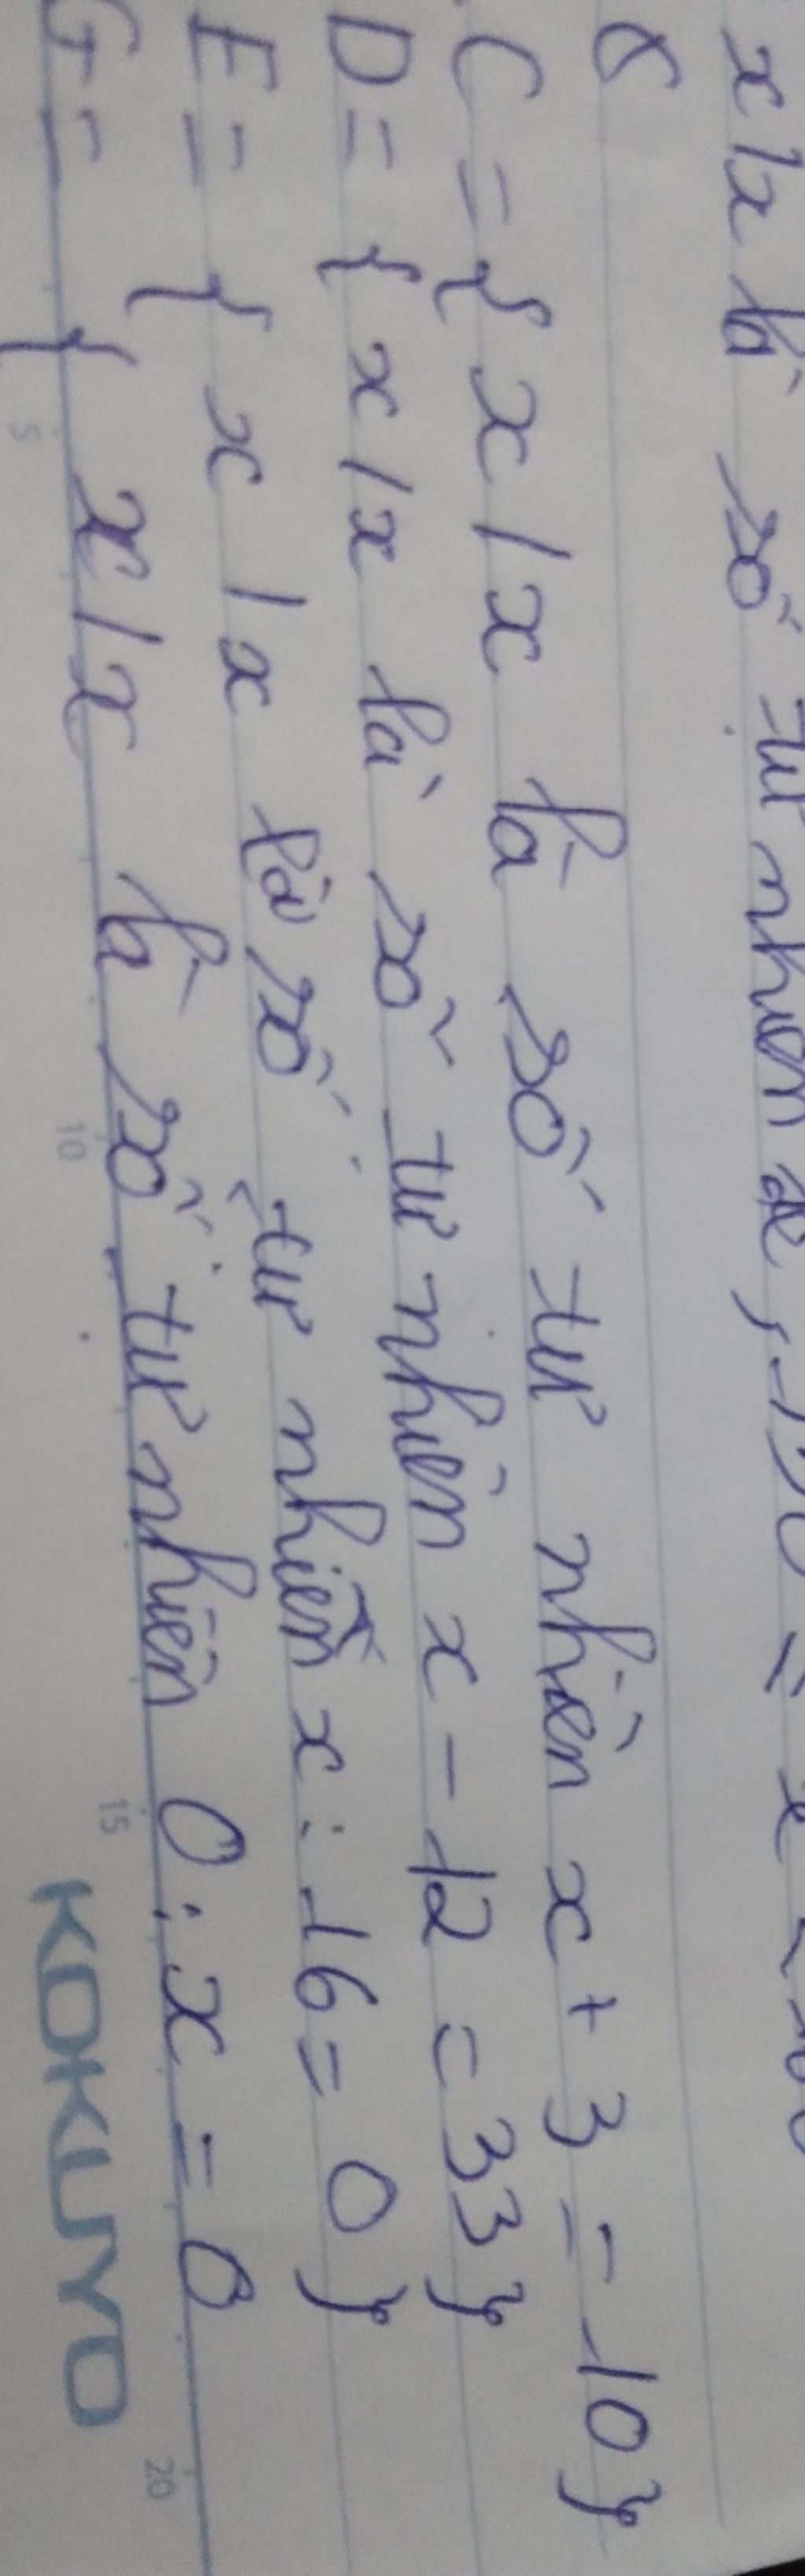 x/x là số tự nhiên
C = { x/x là số tự nhiên x + 3 = 10}
D = { x/x là số tự nhiên x - 12 = 33}
E = { x/x là số tự nhiên x : 16 = 0}
G = { x/x là số tự nhiên 0 : x = 0
5 10 15 20
KOKUYO